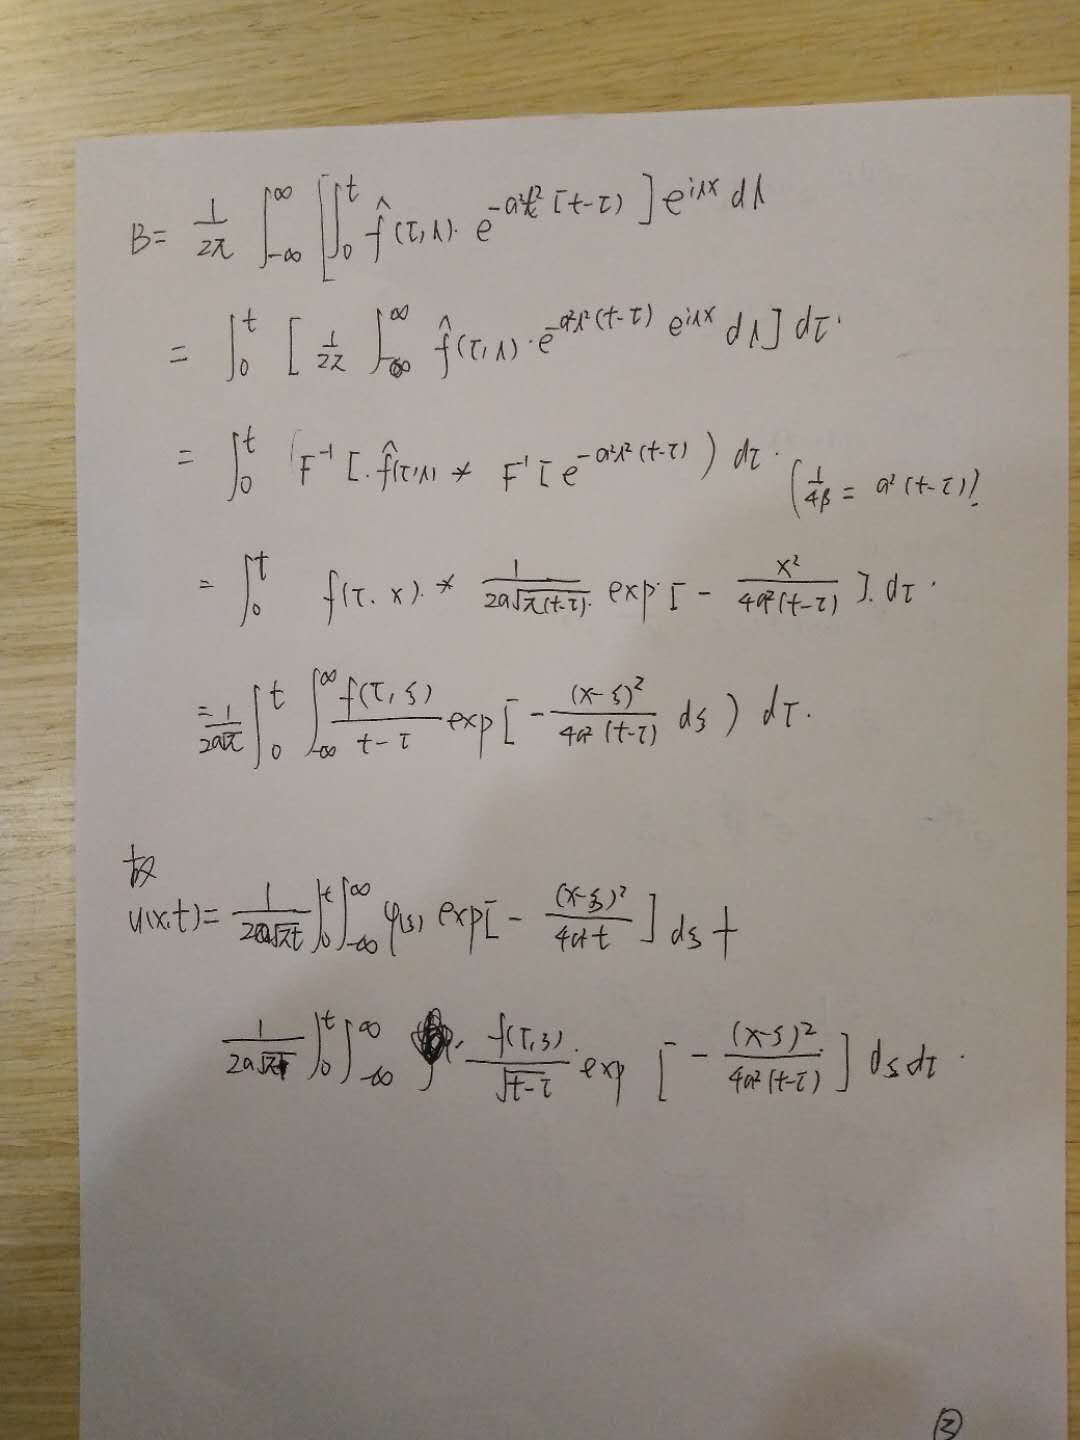 B= 1/2π ∫_{-∞}^{∞} [∫_0^t f̂(τ,λ)· e^{-a²λ²[t-τ)} ] e^{iλx} dλ
= ∫_0^t [ 1/2π ∫_{-∞}^{∞} f̂(τ,λ)·e^{-a²λ²(t-τ)} e^{iλx} dλ] dτ.
= ∫_0^t (F^{-1} [. f̂(τ,λ) * F^{-1} [ e^{-a²λ²(t-τ)} ) dτ. (1/4β = a²(t-τ))!
= ∫_0^t f(τ. x). * 1/2a√π(t-τ). exp. [ - x²/4a²(t-τ) ]. dτ.
= 1/2a√π ∫_0^t ∫_{-∞}^{∞} f(τ,ξ)/t-τ exp[ - (x-ξ)²/4a²(t-τ) dξ ) dτ.
故
u(x,t)= 1/2a√πt ∫_0^t ∫_{-∞}^{∞} φ(ξ) exp[ - (x-ξ)²/4a²t ] dξ +
1/2a√π ∫_0^t ∫_{-∞}^{∞} · f(τ,ξ)./√t-τ exp [ - (x-ξ)²/4a²(t-τ) ] dξ dτ.
③